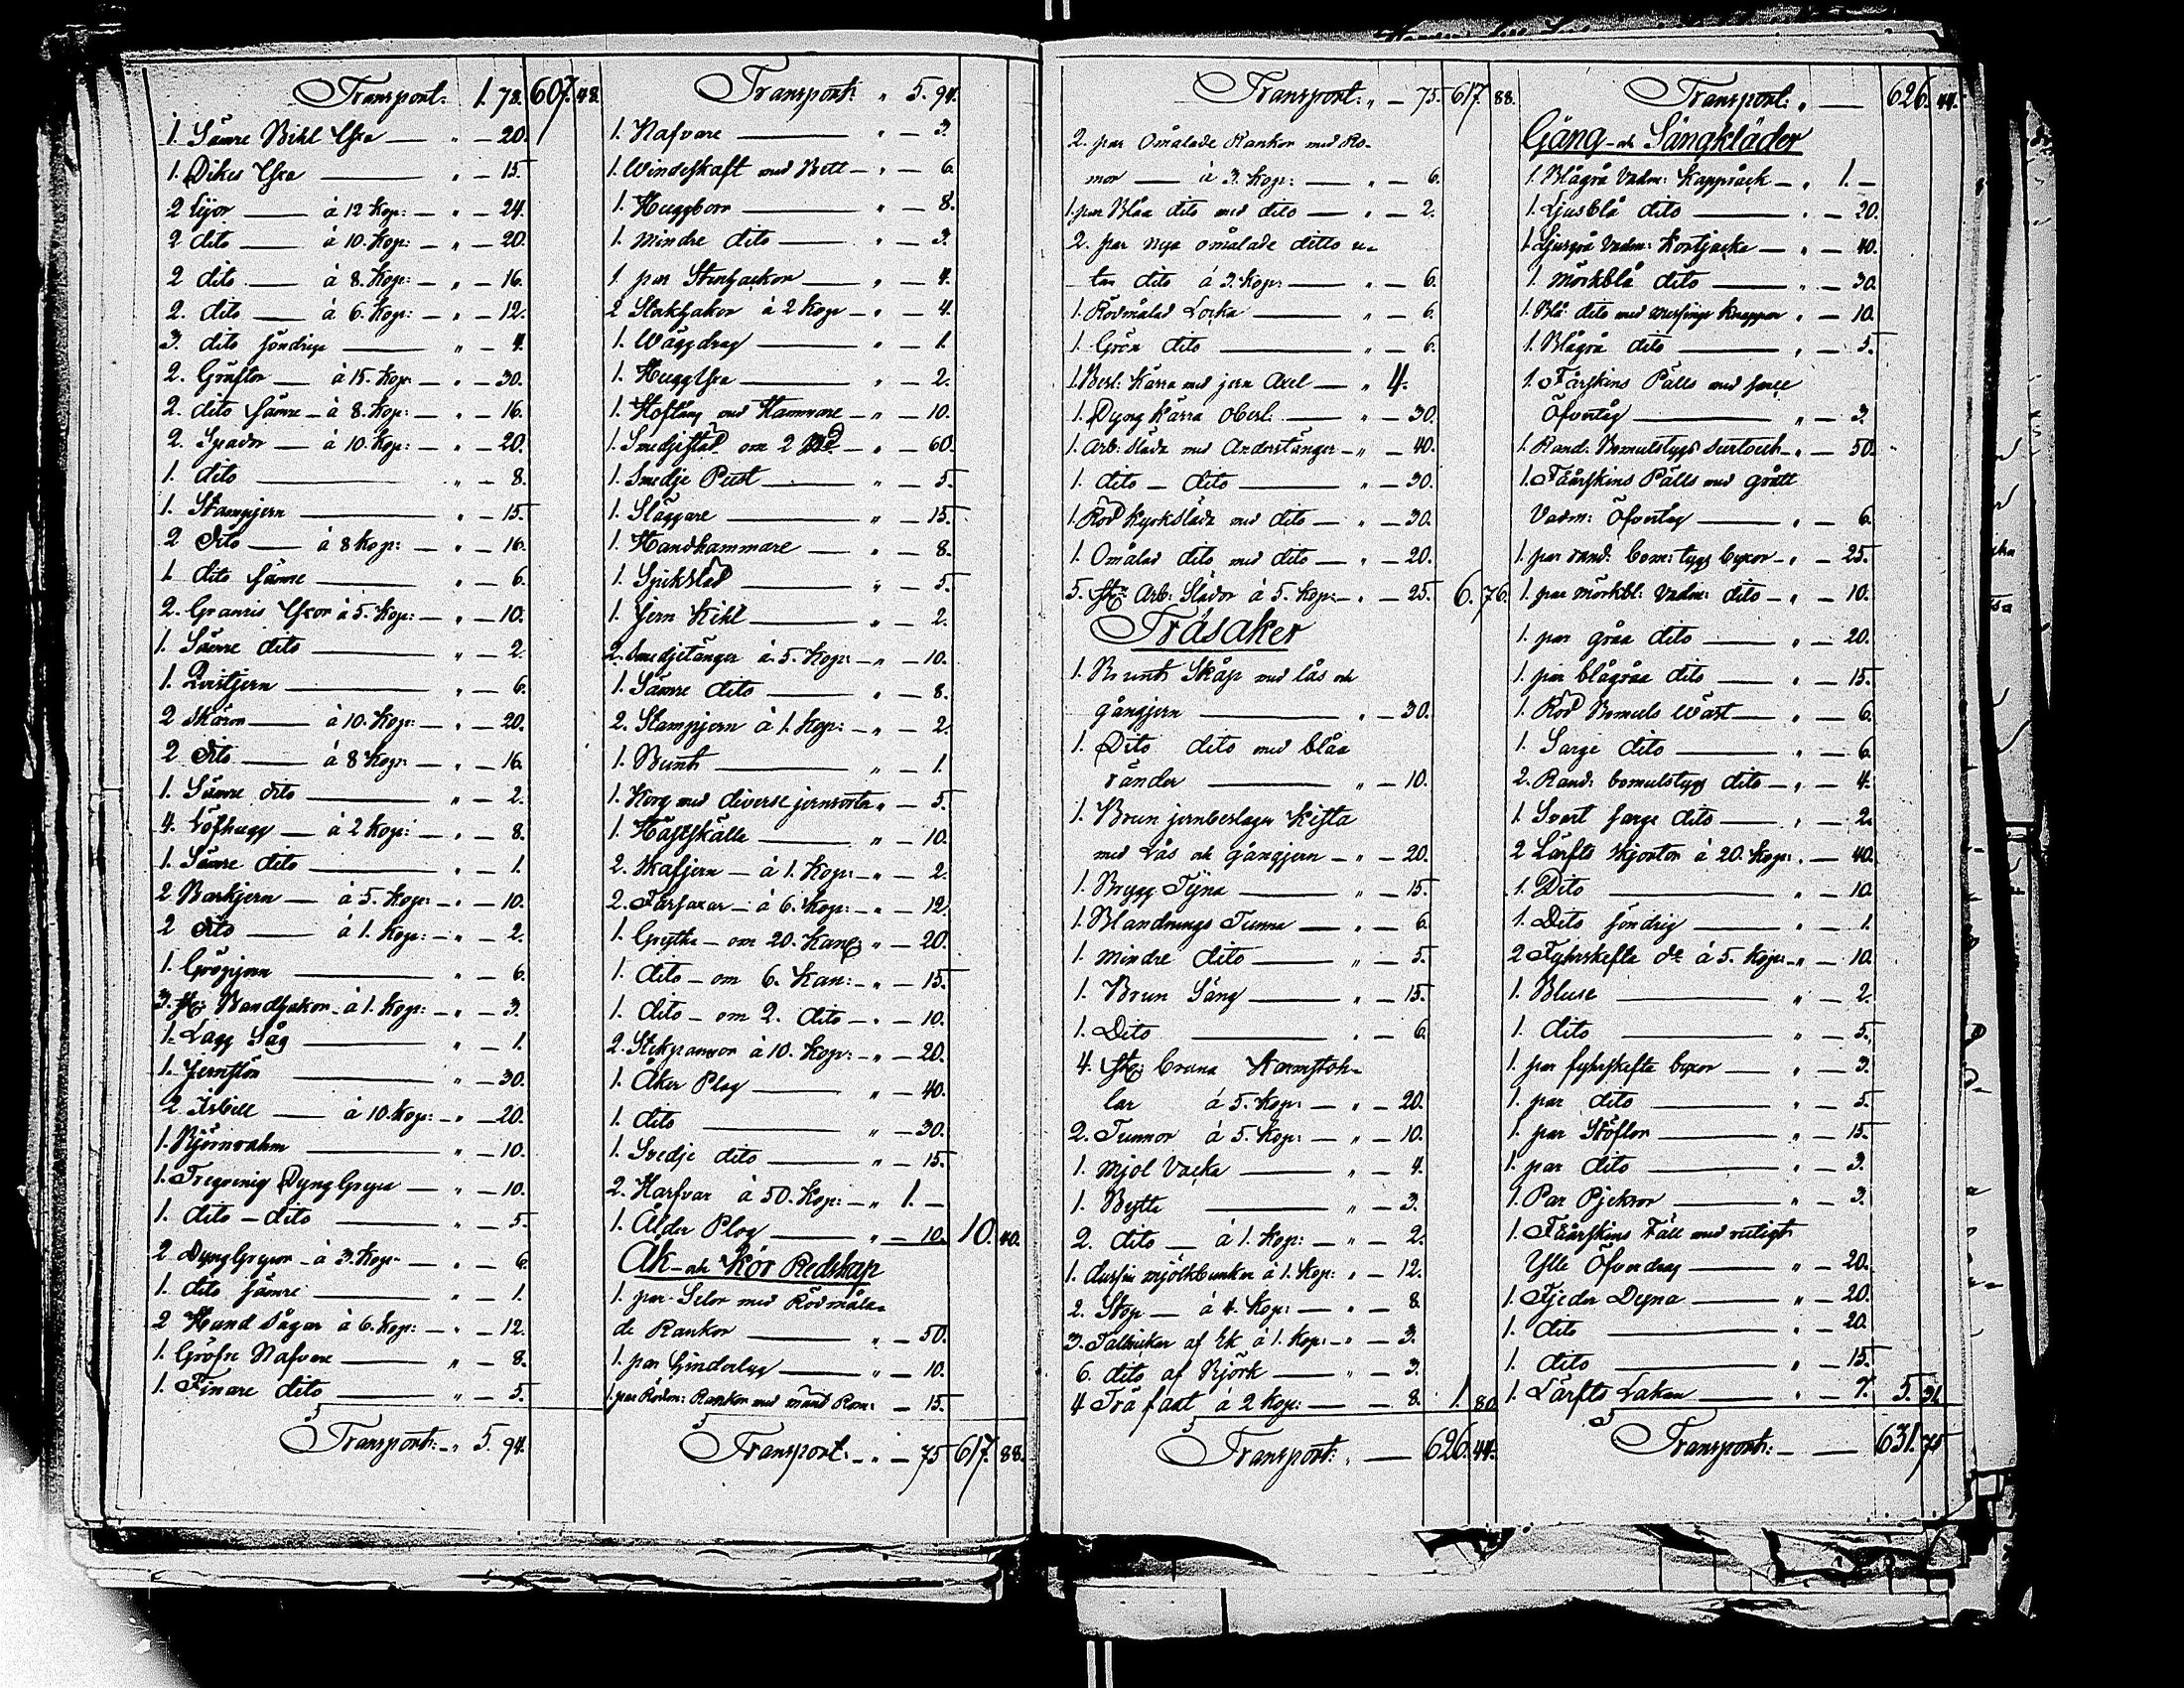 Transport: 1. 78. 607. 48.
1. Sämre Bihl Yxa — " — 20.
1. Dikes Yxa — " — 15.
2 Lijor — à 12 Kop: — " — 24.
2 dito — à 10. Kop: — " — 20.
2 dito — à 8. Kop: — " — 16.
2. dito — à 6. Kop: — " — 12.
3. dito söndriga — " — 4.
2. Gräftor — à 15. Kop: — " — 30.
2. dito sämre — à 8. Kop: — " — 16.
2. Spador — à 10. Kop: — " — 20.
1. dito — " — 8.
1. Stampjern — " — 15.
2 dito — à 8 Kop: — " — 16.
1. dito sämre — " — 6.
2. Granris Yxor à 5. Kop: — " — 10.
1. Sämre dito — " — 2.
1. Qvistjern — " — 6.
2 Skäror — à 10. Kop: — " — 20.
2 dito — à 8 Kop: — " — 16.
1. Sämre dito — " — 2.
4. Löfhugg — à 2 Kop: — " — 8.
1. Sämre dito — " — 1.
2 Barkjern — à 5. Kop: — " — 10.
2 dito — à 1. Kop: — " — 2.
1. Gröpjern — " — 6.
3. st: Bandhakor à 1. Kop: — " — 3.
1. Lagg Såg — " — 1.
1. Jernstör — " — 30.
2. Isbill — à 10. Kop: — " — 20.
1. Björnrahm — " — 10.
1. Tregrenig Dyng Grepa — " — 10.
1. dito — dito — " — 5.
2. Dyng Grepor — à 3. Kop: — " — 6.
1. dito sämre — " — 1.
2 Hand Sågar à 6. Kop: — " — 12.
1. Gröfre Nafvare — " — 8.
1. Finare dito — " — 5.
Transport: — " 5. 94.
Transport: " 5. 94.
1. Nafvare — " — 3.
1. Windeskaft med Bett — " — 6.
1. Huggborr — " — 8.
1. mindre dito — " — 3.
1 par Stenhackor — " — 4.
2 Stockhakor à 2 Kop — " — 4.
1. Wäggdrag — " — 1.
1. HuggYxa — " — 2.
1. Hoftång med Hammare — " — 10.
1. Smedjestäd om 2 — " — 60.
1. Smedje Pust — " — 5.
1. Släggare — " — 15.
1. Handhammare — " — 8.
1. Spikstäd — " — 5.
1. Jern Kihl — " — 2.
2. Smedjetänger à 5. Kop: — " — 10.
1. Sämre dito — " — 8.
2. Stampjern à 1. Kop: — " — 2.
1. Bunth — " — 1.
1. Korg med diverse jernsorter " — 5.
1. Hästskälla — " — 10.
2. Skafjern — à 1. Kop: — " — 2.
2. Fårsaxar — à 6. Kop: — " — 12.
1. Gryta — om 20. Kan: " — 20.
1. dito — om 6. Kan: — " — 15.
1. dito — om 2. dito — " — 10.
2. Stekpannor à 10. Kop: — " — 20.
1. Åker Plog — " — 40.
1. dito — " — 30.
1. Svedje dito — " — 15.
2. Harfvar à 50. Kop: — " 1. —
1. Ålder Plog — " — 10. 10. 40.
Åk- och Kör Redskap
1. par Selor med Rödmåla-
de Rankor — " — 50.
1. par Hinderlag — " — 10.
1. par Rödm: Rankor med Rem: — 15.
Transport: — " — 75 617. 88.
Transport: " — 75. 617. 88.
2. par Omålade Rankor med Re-
mar — à 3. Kop: — " — 6.
1. par Blåa dito med dito — " — 2.
2. par nya omålade ditto u-
tan dito à 3. Kop: — " — 6.
1. Rödmålad Locka — " — 6.
1. Grön dito — " — 6.
1. Besl: Kärra med jern Axel — " 4.
1. Dyng Kärra obesl: — " — 30.
1. Arb: Släda med Anderstänger — " — 40.
1. dito — dito — " — 30.
1. Röd Kyrksläda med dito — " — 30.
1. Omålad dito med dito — " — 20.
5. St: Arb: Slädor à 5. Kop: — " — 25. 6. 76.
Träsaker
1. Brunt Skåp med lås och
gångjern — " — 30.
1. Dito dito med blåa
ränder — " — 10.
1. Brun jernbeslagen Kista
med Lås och gångjern — " — 20.
1. Brygg Tyna — " — 15.
1. Blandnings Tunna — " — 6.
1. mindre dito — " — 5.
1. Brun Säng — " — 15.
1. Dito — " — 6.
4. St: bruna Karmstoh-
lar à 5. Kop: — " — 20.
2. Tunnor à 5. Kop: — " — 10.
1. Mjöl Vacka — " — 4.
1. Bytta — " — 3.
2. dito — à 1. Kop: — " — 2.
1. dussin mjölkbunkar à 1. Kop: " — 12.
2. Stop — à 4. Kop: — " — 8.
3. Tallrickar af Ek à 1. Kop: — " — 3.
6. dito af Björk — " — 3.
4 Träfaat à 2 Kop: — — 8. 1. 80.
Transport: " — 626. 44.
Transport: " — 626. 44.
Gång- och Sängkläder
1. Blågrå Vadm: Kappråck — " 1. —
1. Ljusblå dito — " — 20.
1. Ljusgrå Vadm: Kortjacka — " — 40.
1. Mörkblå dito — " — 30.
1. Blå dito med messings Knappar " — 10.
1. Blågrå dito — " — 5.
1. Fårskins Pälls med
Öfvertåg — " — 3.
1. Rand: Bomulstygs Surtout — " — 50.
1. Fåårskins Pälls med grått
Vadm: Öfvertåg — " — 6.
1. par rand: bom: tygs byxor — " — 25.
1. par Mörkbl: Vadm: dito — " — 10.
1. par gråa dito — " — 20.
1. par blågråa dito — " — 15.
1. Röd Bomuls Wäst — " — 6.
1. Sarge dito — " — 6.
2. Rand: bomulstygs dito — " — 4.
1. Svart sarge dito — " — 2.
2 Lärfts Skjortor à 20. Kop: " — 40.
1. Dito — 10.
1. Dito söndrig — " — 1.
2 Fyhrskefta do à 5. Kop: — " — 10.
1. Bluse — " — 2.
1. dito — " — 5.
1. par fyhrskefta byxor — " — 3.
1. par dito — " — 5.
1. par Stöflor — " — 15.
1. par dito — " — 3.
1. Par Pjeksor — " — 3.
1. Fåårskins Fäll med rutigt
Ylle Öfverdrag — " — 20.
1. Fjeder Dyna — " — 20.
1. dito — " — 20.
1. dito — " — 15.
1. Lärfts Lakan — " — 7. 5. 31.
Transport: — — 631. 75